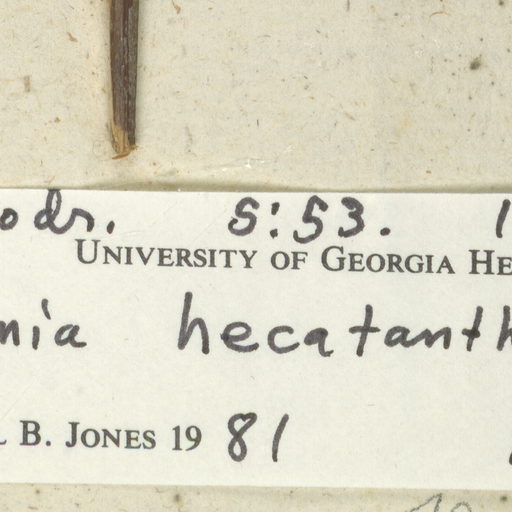 odr. 5:53. 1
UNIVERSITY OF GEORGIA HE
nia hecatanth
. B. JONES 19 81